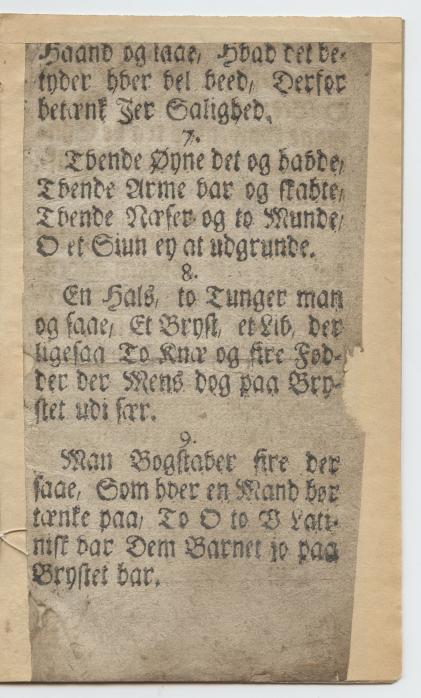 Haand og laae, Hvad det be-
tyder hver vel veed, Derfor
betænk Jer Salighed.
7.
Tvende Øyne det og havde,
Tvende Arme var og skabte,
Tvende Næser og to Munde,
O et Siun ey at udgrunde.
8.
En Hals, to Tunger man
og saae, Et Bryst, et Liv, der
ligesaa To Knæ og fire Fød-
der der Mens dog paa Bry-
stet udi sær.
9.
Man Bogstaver fire der
saae, Som hver en Mand bør
tænke paa, To O to V Lati-
nisk var Dem Barnet jo paa
Brystet bar.